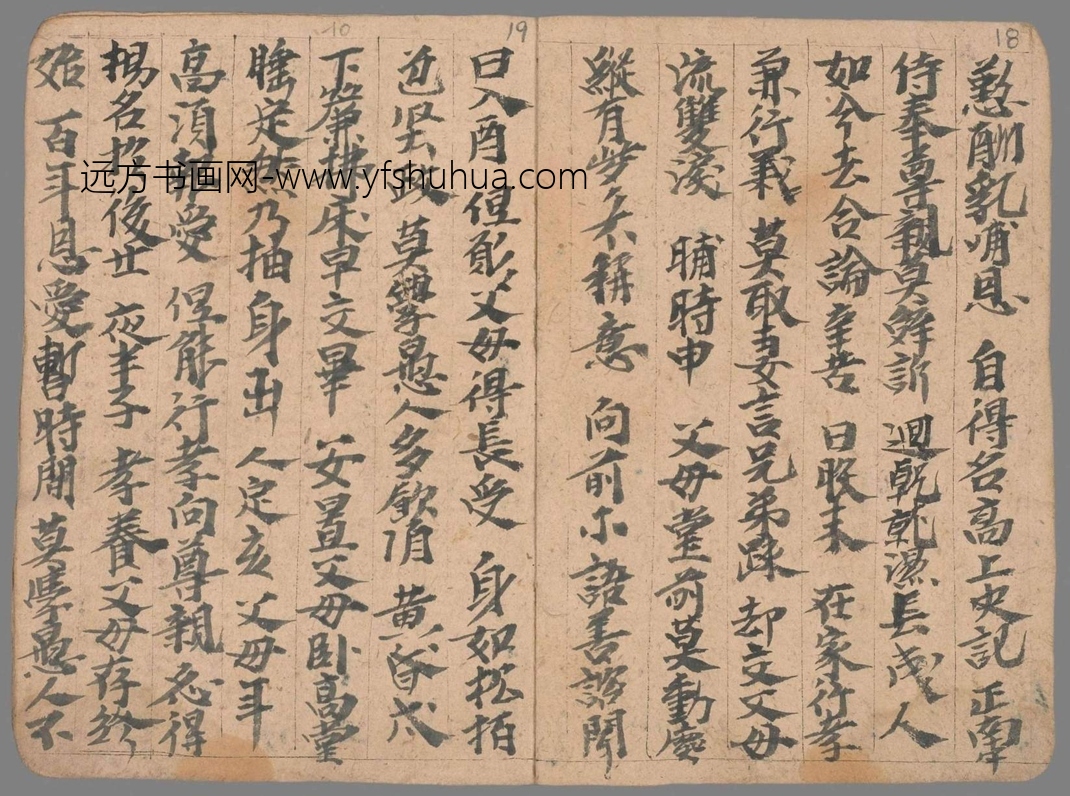 18
懃酬乳哺恩 自得名高上史記 正南午
侍奉尊親莫辞訴 迴乾就濕長成人
如今去合論辛苦 日昳未 在家行孝
兼行義 莫取妻言兄弟踈 却交父母
流雙淚 晡時申 父母堂前莫動塵
縱有些些不稱意 向前小語善諮聞
19
日入酉 但願父母得長受 身如松柏
色坚政 莫學愚人多飲酒 黄昏戌
下簾拂床早交畢 安置父母卧高堂
睡定然乃抽身出 人定亥 父母年
高須報愛 但能行孝向尊親 忩得
揚名於後世 夜半子 孝養父母存終
始 百年恩愛暫時間 莫學愚人不
10
远方书画网-www.yfshuhua.com